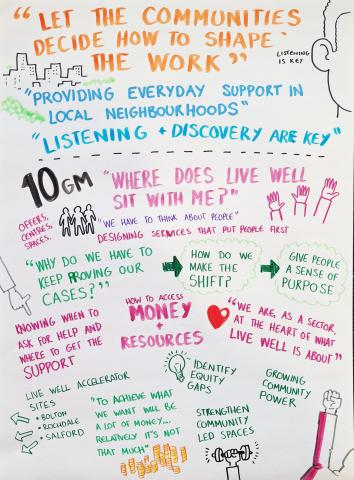 "LET THE COMMUNITIES
DECIDE HOW TO SHAPE
THE WORK"
LISTENING
IS KEY
"PROVIDING EVERYDAY SUPPORT IN
LOCAL NEIGHBOURHOODS"
"LISTENING + DISCOVERY ARE KEY"
10GM
OFFERS,
CENTRES,
SPACES.
"WHERE DOES LIVE WELL
SIT WITH ME?"
"WE HAVE TO THINK ABOUT PEOPLE"
DESIGNING SERVICES THAT PUT PEOPLE FIRST
"WHY DO WE HAVE TO
KEEP PROVING OUR
CASES?"
HOW DO WE
MAKE THE
SHIFT?
GIVE PEOPLE
A SENSE OF
PURPOSE
KNOWING WHEN TO
ASK FOR HELP AND
WHERE TO GET THE
SUPPORT
HOW TO ACCESS
MONEY
+
RESOURCES
"WE ARE, AS A SECTOR,
AT THE HEART OF WHAT
LIVE WELL IS ABOUT"
LIVE WELL ACCELERATOR
SITES
• BOLTON
• ROCHDALE
• SALFORD
"TO ACHIEVE WHAT
WE WANT WILL BE
A LOT OF MONEY...
RELATIVELY IT'S NOT
THAT MUCH"
IDENTIFY
EQUITY
GAPS
GROWING
COMMUNITY
POWER
STRENGTHEN
COMMUNITY
LED SPACES